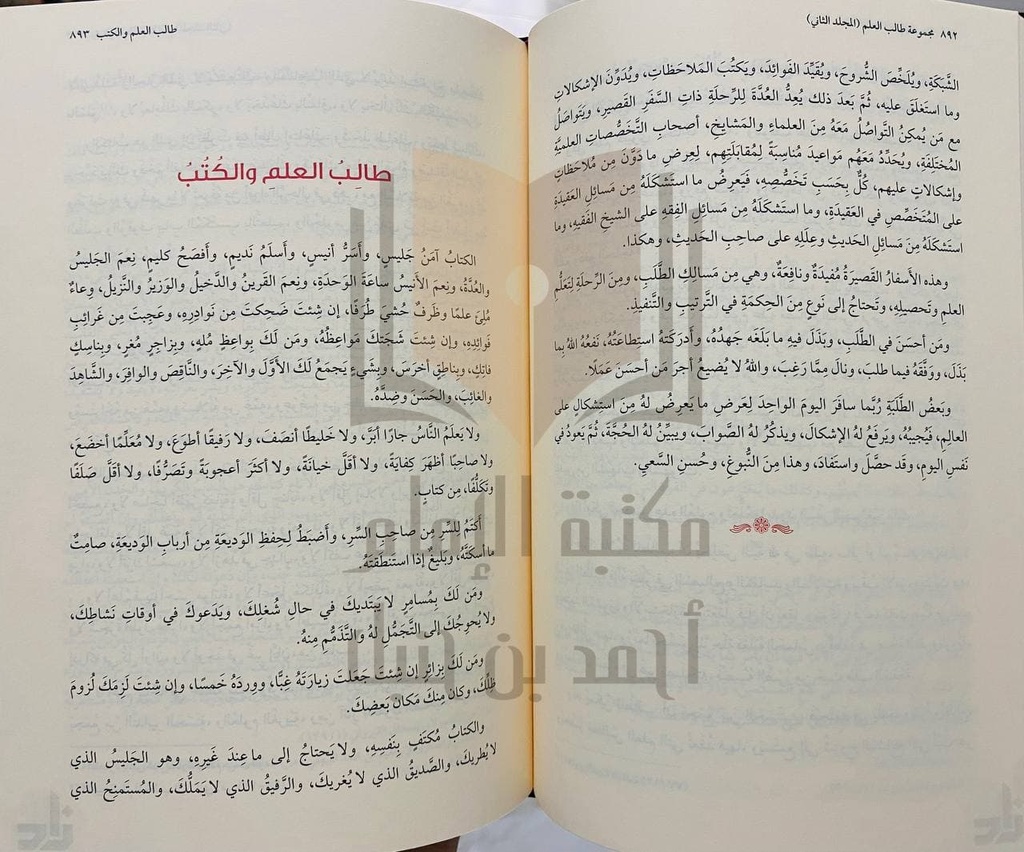 ٨٩٢ مجموعة طالب العلم (المجلد الثاني)
الشَّبَكَةِ، ويُلَخِّصَ الشُّروحَ، ويُقَيِّدَ الفَوائِدَ، ويَكتُبَ المَلاحَظاتِ، ويُدَوِّنَ الإشكالاتِ
وما استَغلَقَ عليه، ثُمَّ بَعدَ ذلك يُعِدُّ العُدَّةَ لِلرِّحلَةِ ذاتِ السَّفَرِ القَصيرِ، ويَتَواصَلُ
مع مَن يُمكِنُ التَّواصُلُ مَعَهُ مِنَ العلماءِ والمَشايِخِ، أصحابِ التَّخَصُّصاتِ العلميَّةِ
المُختَلِفَةِ، ويُحَدِّدُ مَعَهُم مَواعيدَ مُناسِبَةً لِمُقابَلَتِهِم، لِعِرضِ ما دَوَّنَ مِن مُلاحَظاتٍ
وإشكالاتٍ عليهم، كُلٌّ بِحَسَبِ تَخَصُّصِهِ، فَيَعرِضُ ما استَشكَلَهُ مِن مَسائِلِ العَقيدَةِ
على المُتَخَصِّصِ في العَقيدَةِ، وما استَشكَلَهُ مِن مَسائِلِ الفِقهِ على الشيخِ الفَقيهِ، وما
استَشكَلَهُ مِن مَسائِلِ الحَديثِ وعِلَلِهِ على صاحِبِ الحَديثِ، وهكذا.
وهذه الأسفارُ القَصيرَةُ مُفيدَةٌ ونافِعَةٌ، وهي مِن مَسالِكِ الطَّلَبِ، ومِنَ الرِّحلَةِ لِتَعَلُّمِ
العلمِ وتَحصيلِهِ، وتَحتاجُ إلى نَوعٍ مِنَ الحِكمَةِ في التَّرتيبِ والتَّنفيذِ.
ومَن أحسَنَ في الطَّلَبِ، وبَذَلَ فيهِ ما بَلَغَه جَهدُهُ، وأدرَكَتهُ استِطاعَتُهُ، نَفعُهُ اللهُ بِما
بَذَلَ، ووَفَّقَهُ فيما طلبَ، ونالَ مِمَّا رَغِبَ، واللهُ لا يُضيعُ أجرَ مَن أحسَنَ عَمَلًا.
وبَعضُ الطَّلَبَةِ رُبَّما سافَرَ اليومَ الواحِدَ لِعَرضِ ما يَعرِضُ لهُ مِنَ استِشكالٍ على
العالِمِ، فَيُجيبُهُ، ويَرفَعُ لهُ الإشكالَ، ويذكُرُ لهُ الصَّوابَ، ويبيِّنُ لهُ الحُجَّةَ، ثُمَّ يَعودُ في
نَفسِ اليومِ، وقَد حصَّلَ واستَفادَ، وهذا مِنَ النُّبوغِ، وحُسنِ السَّعيِ.
طالب العلم والكتب ٨٩٣
طالِبُ العلمِ والكُتُبُ
الكتابُ آمَنُ جَليسٍ، وأسَرُّ أنيسٍ، وأسلَمُ نَديمٍ، وأفصَحُ كليمٍ، نِعمَ الجَليسُ
والعُدَّةُ، ونِعمَ الأنيسُ ساعَةَ الوَحدَةِ، ونِعمَ القَرينُ والدَّخيلُ والوَزيرُ والنَّزيلُ، وِعاءٌ
مُلِئَ علمًا وظَرفٌ حُشيَ طُرَفًا، إن شِئتَ ضَحِكتَ مِن نَوادِرِهِ، وعَجِبتَ مِن غَرائِبِ
فَوائِدِهِ، وإن شِئتَ شَجَتكَ مَواعِظُهُ، ومَن لَكَ بِواعِظٍ مُلهٍ، وبِزاجِرٍ مُغرٍ، وبِناسِكٍ
فاتِكٍ، وبِناطِقٍ أخرَسَ، وبِشَيءٍ يَجمَعُ لَكَ الأوَّلَ والآخِرَ، والنَّاقِصَ والوافِرَ، والشَّاهِدَ
والغائِبَ، والحَسَنَ وضِدَّهُ.
ولا يَعلَمُ النَّاسُ جارًا أبَرَّ، ولا خَليطًا أنصَفَ، ولا رَفيقًا أطوَعَ، ولا مُعَلِّمًا أخضَعَ،
ولا صاحِبًا أظهَرَ كِفايَةً، ولا أقَلَّ خيانَةً، ولا أكثَرَ أعجوبَةً وتَصَرُّفًا، ولا أقَلَّ صَلَفًا
وتَكَلُّفًا، مِن كتابٍ.
أكتَمُ لِلسِّرِ مِن صاحِبِ السِّرِ، وأضبَطُ لِحِفظِ الوَديعَةِ مِن أربابِ الوَديعَةِ، صامِتٌ
ما أسكَتَّهُ، وبَليغٌ إذا استَنطَقتَهُ.
ومَن لَكَ بِمُسامِرٍ لا يَبتَديكَ في حالِ شُغلِكَ، ويَدعوكَ في أوقاتِ نَشاطِكَ،
ولا يُحوِجُكَ إلى التَّجَمُّلِ لهُ والتَّذَمُّمِ مِنهُ.
ومَن لَكَ بِزائِرٍ إن شِئتَ جَعَلتَ زيارَتَهُ غِبًّا، ووردَهُ خَمسًا، وإن شِئتَ لَزِمَكَ لُزومَ
ظِلِّكَ، وكانَ مِنكَ مَكانَ بَعضِكَ.
والكتابُ مُكتَفٍ بِنَفسِهِ، ولا يَحتاجُ إلى ما عِندَ غَيرِهِ، وهو الجَليسُ الذي
لا يُطريكَ، والصَّديقُ الذي لا يُغريكَ، والرَّفيقُ الذي لا يَمَلُّكَ، والمُستَمنِحُ الذي
مكتبة الإمام
أحمد بن حنبل
زاد
زاد